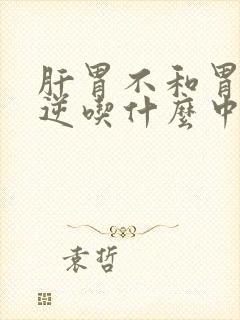 肝胃不和胃
逆喫什麼中
袁哲